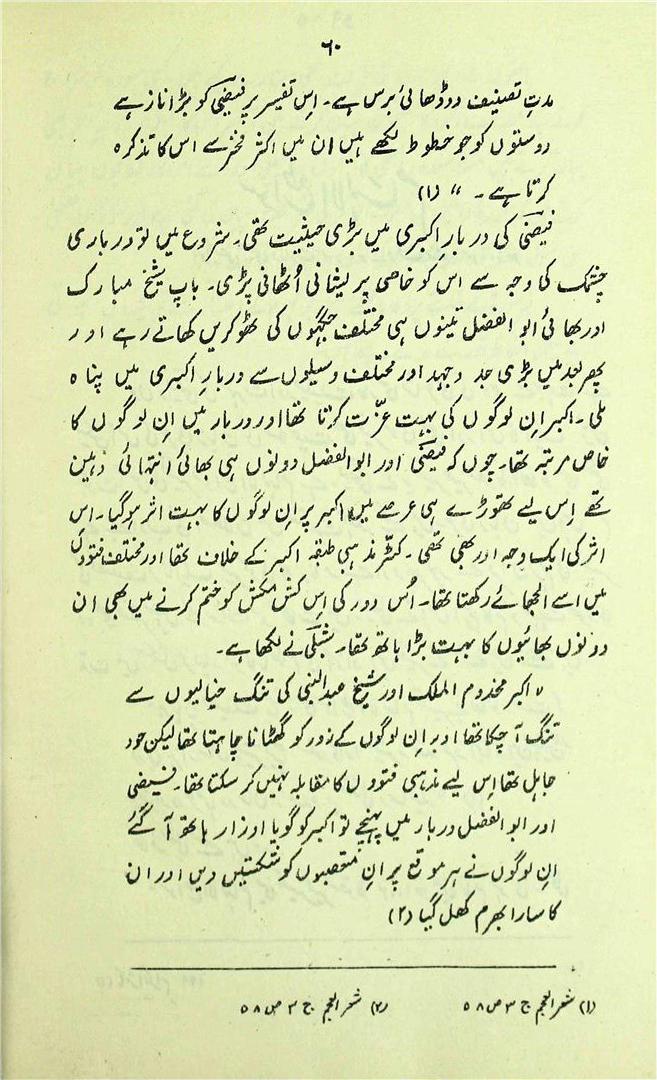 ۶۰
مدتِ تصنیف دو ڈھائی برس ہے۔ اِس تفسیر پر فیضی کو بڑا ناز ہے
دوستوں کو جو خطوط لکھے ہیں ان میں اکثر فخر سے اس کا تذکرہ
کرتا ہے۔ " (۱)
فیضی کی دربارِ اکبری میں بڑی حیثیت تھی۔ شروع میں تو درباری
چشمک کی وجہ سے اس کو خاصی پریشانی اُٹھانی پڑی۔ باپ شیخ مبارک
اور بھائی ابو الفضل تینوں ہی مختلف جگہوں کی ٹھوکریں کھاتے رہے اور
پھر بعد میں بڑی جد و جہد اور مختلف وسیلوں سے دربارِ اکبری میں پناہ
ملی۔ اکبر اِن لوگوں کی بہت عزّت کرتا تھا اور دربار میں اِن لوگوں کا
خاص مرتبہ تھا۔ چوں کہ فیضی اور ابو الفضل دونوں ہی بھائی انتہائی ذہین
تھے اِس لیے تھوڑے ہی عرصے میں اکبر پر اِن لوگوں کا بہت اثر ہو گیا۔ اس
اثر کی ایک وجہ اور بھی تھی۔ کٹّر مذہبی طبقہ اکبر کے خلاف تھا اور مختلف فتوؤں
میں اسے الجھائے رکھتا تھا۔ اُس دور کی اِس کش مکش کو ختم کرنے میں بھی ان
دونوں بھائیوں کا بہت بڑا ہاتھ تھا۔ شبلی نے لکھا ہے۔
" اکبر مخدوم الملک اور شیخ عبد النبی کی تنگ خیالیوں سے
تنگ آ چکا تھا اور اِن لوگوں کے زور کو گھٹانا چاہتا تھا لیکن خود
جاہل تھا اِس لیے مذہبی فتوؤں کا مقابلہ نہیں کر سکتا تھا۔ فیضی
اور ابو الفضل دربار میں پہنچے تو اکبر کو گویا اوزار ہاتھ آ گئے
اِن لوگوں نے ہر موقع پر اِن متعصبوں کو شکستیں دیں اور ان
کا سارا بھرم کھل گیا (۲)
(۱) شعر العجم ج ۳ ص ۵۸ (۲) شعر العجم ج ۳ ص ۵۸